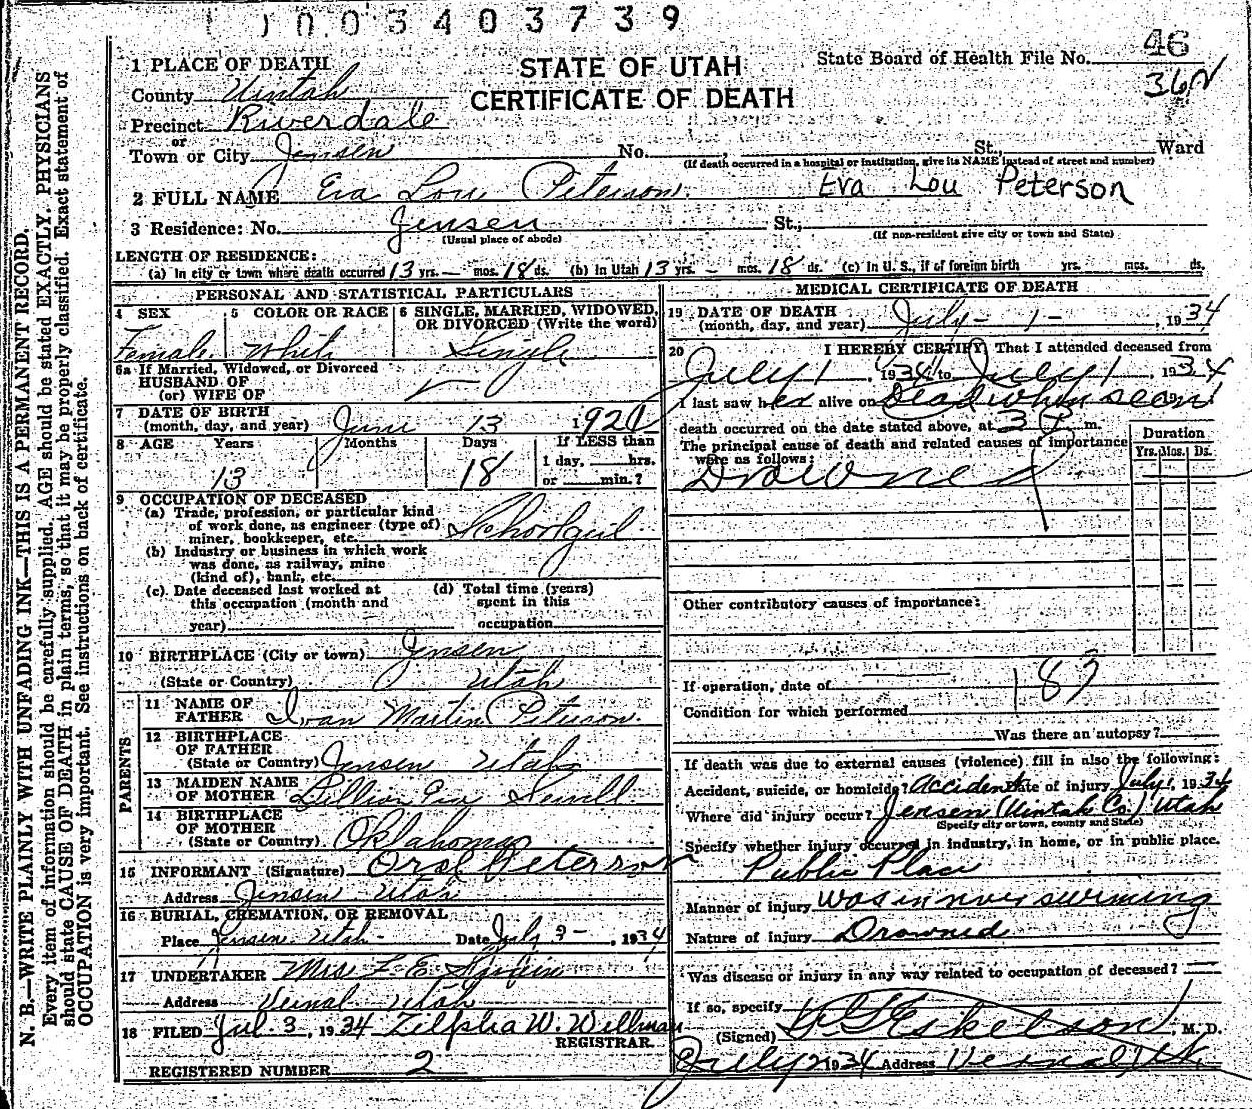 1003403739
STATE OF UTAH
CERTIFICATE OF DEATH
State Board of Health File No. 46
36
1 PLACE OF DEATH
County Uintah
Precinct Riverdale
or
Town or City Jensen No. , St., Ward
(If death occurred in a hospital or institution, give its NAME instead of street and number)
2 FULL NAME Eva Lou Peterson Eva Lou Peterson
3 Residence: No. Jensen St.,
(Usual place of abode) (If non-resident give city or town and State)
LENGTH OF RESIDENCE:
(a) In city or town where death occurred 13 yrs. — mos. 18 ds. (b) In Utah 13 yrs. — mos. 18 ds. (c) In U. S., if of foreign birth yrs. mos. ds.
PERSONAL AND STATISTICAL PARTICULARS
4 SEX 5 COLOR OR RACE 6 SINGLE, MARRIED, WIDOWED, OR DIVORCED (Write the word)
Female White Single
6a If Married, Widowed, or Divorced
HUSBAND OF
(or) WIFE OF —
7 DATE OF BIRTH
(month, day, and year) June 13 1921
8 AGE Years Months Days If LESS than
1 day, hrs.
or min.?
13 18
9 OCCUPATION OF DECEASED
(a) Trade, profession, or particular kind
of work done, as engineer (type of)
miner, bookkeeper, etc. Schoolgirl
(b) Industry or business in which work
was done, as railway, mine
(kind of), bank, etc.
(c) Date deceased last worked at (d) Total time (years)
this occupation (month and spent in this
year) occupation
10 BIRTHPLACE (City or town) Jensen
(State or Country) Utah
PARENTS
11 NAME OF
FATHER Ivan Martin Peterson
12 BIRTHPLACE
OF FATHER
(State or Country) Jensen Utah
13 MAIDEN NAME
OF MOTHER Lillian Eva Sewell
14 BIRTHPLACE
OF MOTHER
(State or Country) Oklahoma
15 INFORMANT (Signature) Oral Peterson
Address Jensen Utah
16 BURIAL, CREMATION, OR REMOVAL
Place Jensen Utah Date July 3 — , 1934
17 UNDERTAKER Mrs L E
Address Vernal Utah
18 FILED Jul. 3, 1934 Zilpha W. Willman
REGISTRAR
REGISTERED NUMBER 2
MEDICAL CERTIFICATE OF DEATH
19 DATE OF DEATH
(month, day, and year) July - 1 - , 1934
20 I HEREBY CERTIFY That I attended deceased from
July 1, 1934 to July 1, 1934
I last saw her alive on Dead when seen 19
death occurred on the date stated above, at 3 P m.
The principal cause of death and related causes of importance
were as follows:
Drowned
Duration
Yrs. Mos. Ds.
Other contributory causes of importance:
183
If operation, date of
Condition for which performed
Was there an autopsy?
If death was due to external causes (violence) fill in also the following:
Accident, suicide, or homicide? Accident Date of injury July 1, 1934
Where did injury occur? Jensen (Uintah Co.) Utah
(Specify city or town, county and State)
Specify whether injury occurred in industry, in home, or in public place.
Public Place
Manner of injury Was in river swimming
Nature of injury Drowned
Was disease or injury in any way related to occupation of deceased? —
If so, specify
(Signed) Eskelson, M. D.
July 2 1934 Address Vernal Utah
N. B.—WRITE PLAINLY WITH UNFADING INK—THIS IS A PERMANENT RECORD.
Every item of information should be carefully supplied. AGE should be stated EXACTLY. PHYSICIANS
should state CAUSE OF DEATH in plain terms, so that it may be properly classified. Exact statement of
OCCUPATION is very important. See instructions on back of certificate.